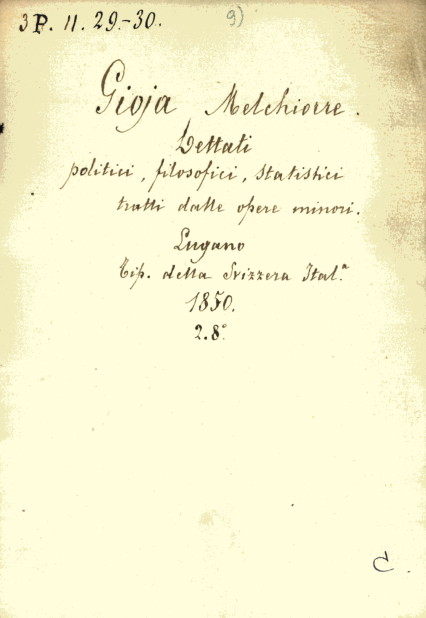 3P. 11. 29.-30.
9)
Gioja Melchiorre.
Dettati
politici, filosofici, statistici
tratti dalle opere minori.
Lugano
Tip. della Svizzera Ital.ª
1850.
2. 8.°
C.